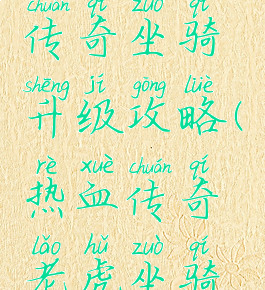 chuán qí zuò qí
传奇坐骑
shēng jí gōng lüè
升级攻略(
rè xuè chuán qí
热血传奇
lǎo hǔ zuò qí
老虎坐骑